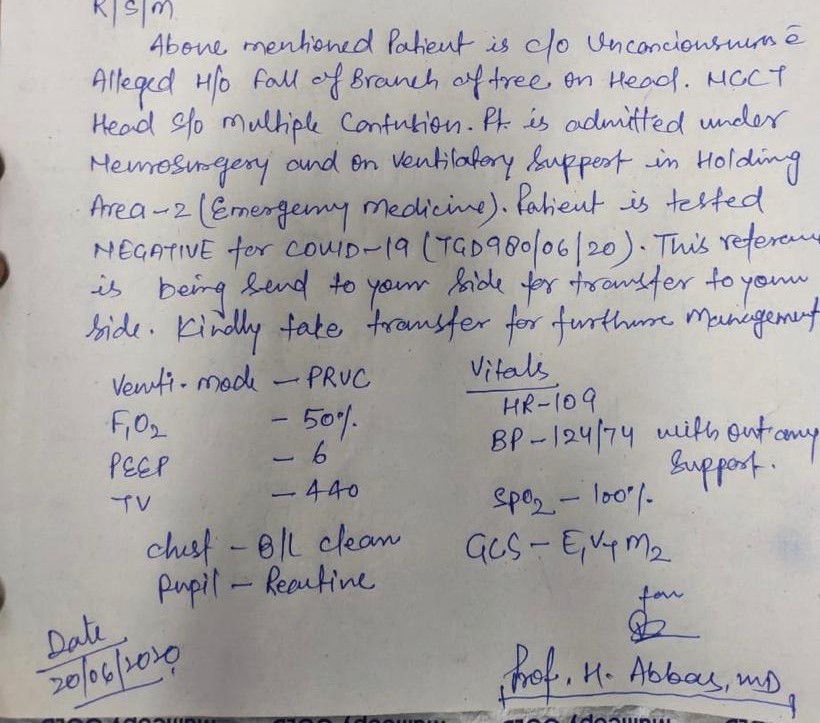 R/S/M
Above mentioned Patient is c/o Unconciousness c̄
Alleged H/o fall of Branch of tree on Head. NCCT
Head S/o multiple Contution. Pt. is admitted under
Neurosurgery and on ventilatory Support in Holding
Area-2 (Emergency Medicine). Patient is tested
NEGATIVE for COVID-19 (TGD980/06/20). This referenc
is being Send to your Side for transfer to your
Side. Kindly take transfer for furthure Management
Venti. mode - PRVC
FiO2 - 50%
PEEP - 6
TV - 440
chest - B/L clean
Pupil - Reactive
Vitals
HR-109
BP-124/74 without any
Support.
SpO2 - 100%
GCS - E1 VT M2
for
Prof. H. Abbas, MD
Date
20/06/2020